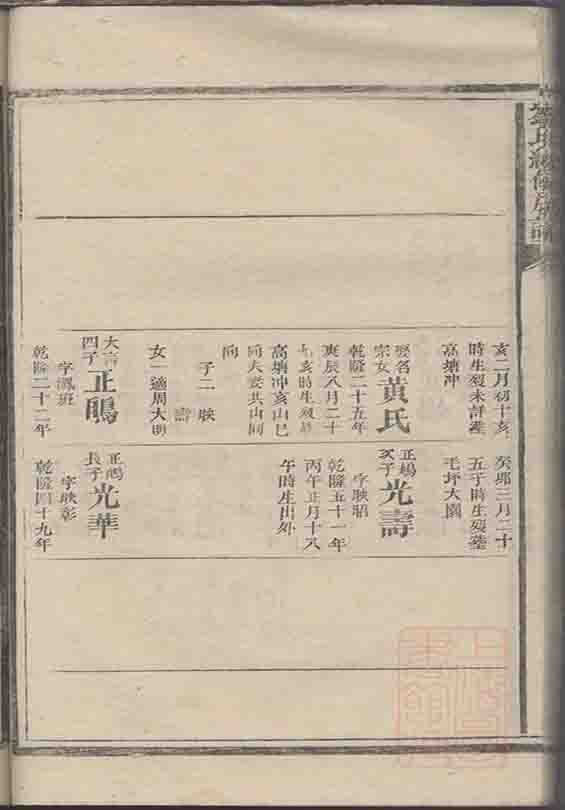 亥二月初十亥
時生歿未詳葬
高塘冲
娶名
宗女
黃氏
乾隆二十五年
庚辰八月二十
亥時生歿
高塘冲亥山巳
向夫妻共山同
向
子二 映
壽
女一適周大明
大言
四子
正鵰
字鳳班
乾隆二十二年
癸郎三月二十
五子時生歿葬
毛坪大園
正鳴
次子
光壽
字映昭
乾隆五十一年
丙午正月十八
午時生出外
長子
光華
字映彰
乾隆四十九年